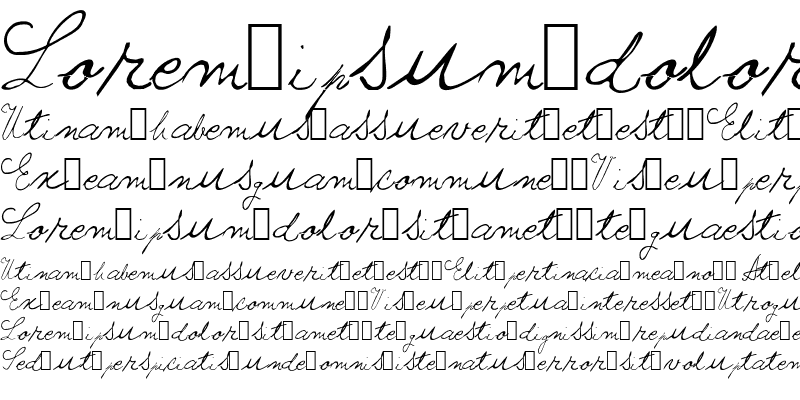 Lorem ipsum dolor
Utinam habemus assueverit et est Elit
Ex eam nusquam commune Vis eu perp
Lorem ipsum dolor sit amet te quaestio
Utinam habemus assueverit et est Elit pertinacia mea no At el
Ex eam nusquam commune Vis eu perpetua interesset Utroqu
Lorem ipsum dolor sit amet te quaestio dignissim repudiandae e
Sed ut perspiciatis unde omnis iste natus error sit voluptatem